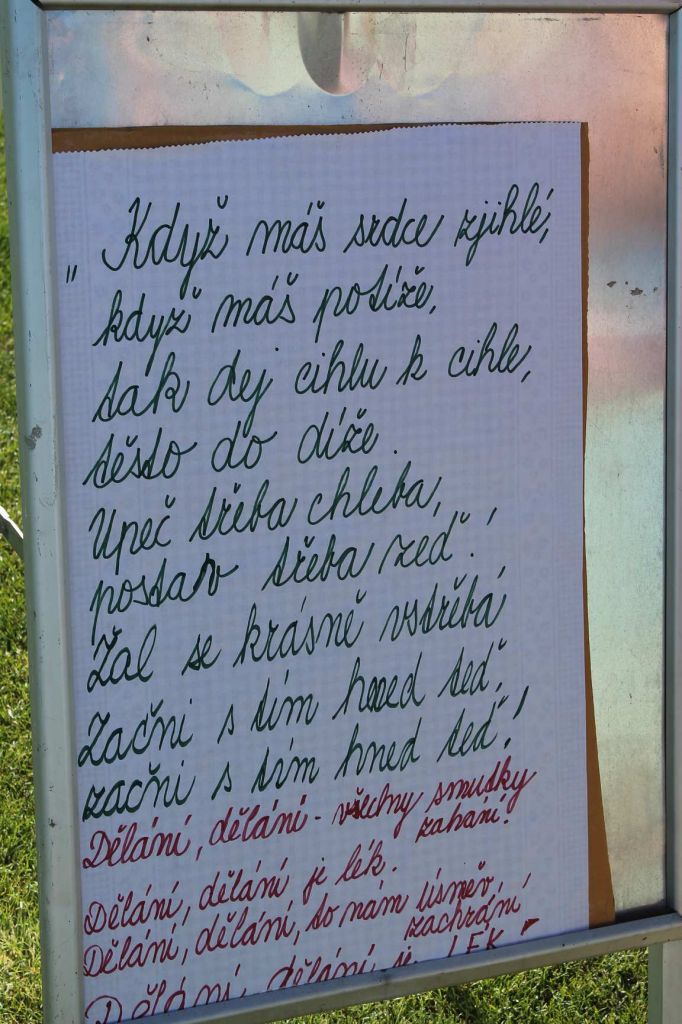 „Když máš srdce zjihlé,
když máš potíže,
tak dej cihlu k cihle,
těsto do díže.
Upeč třeba chleba,
postav třeba zeď!
Žal se krásně vstřebá
Začni s tím hned teď,
začni s tím hned teď!
Dělání, dělání - všechny smutky
zahání!
Dělání, dělání je lék.
Dělání, dělání, to nám úsměv
zachrání
Dělání, dělání je LÉK"